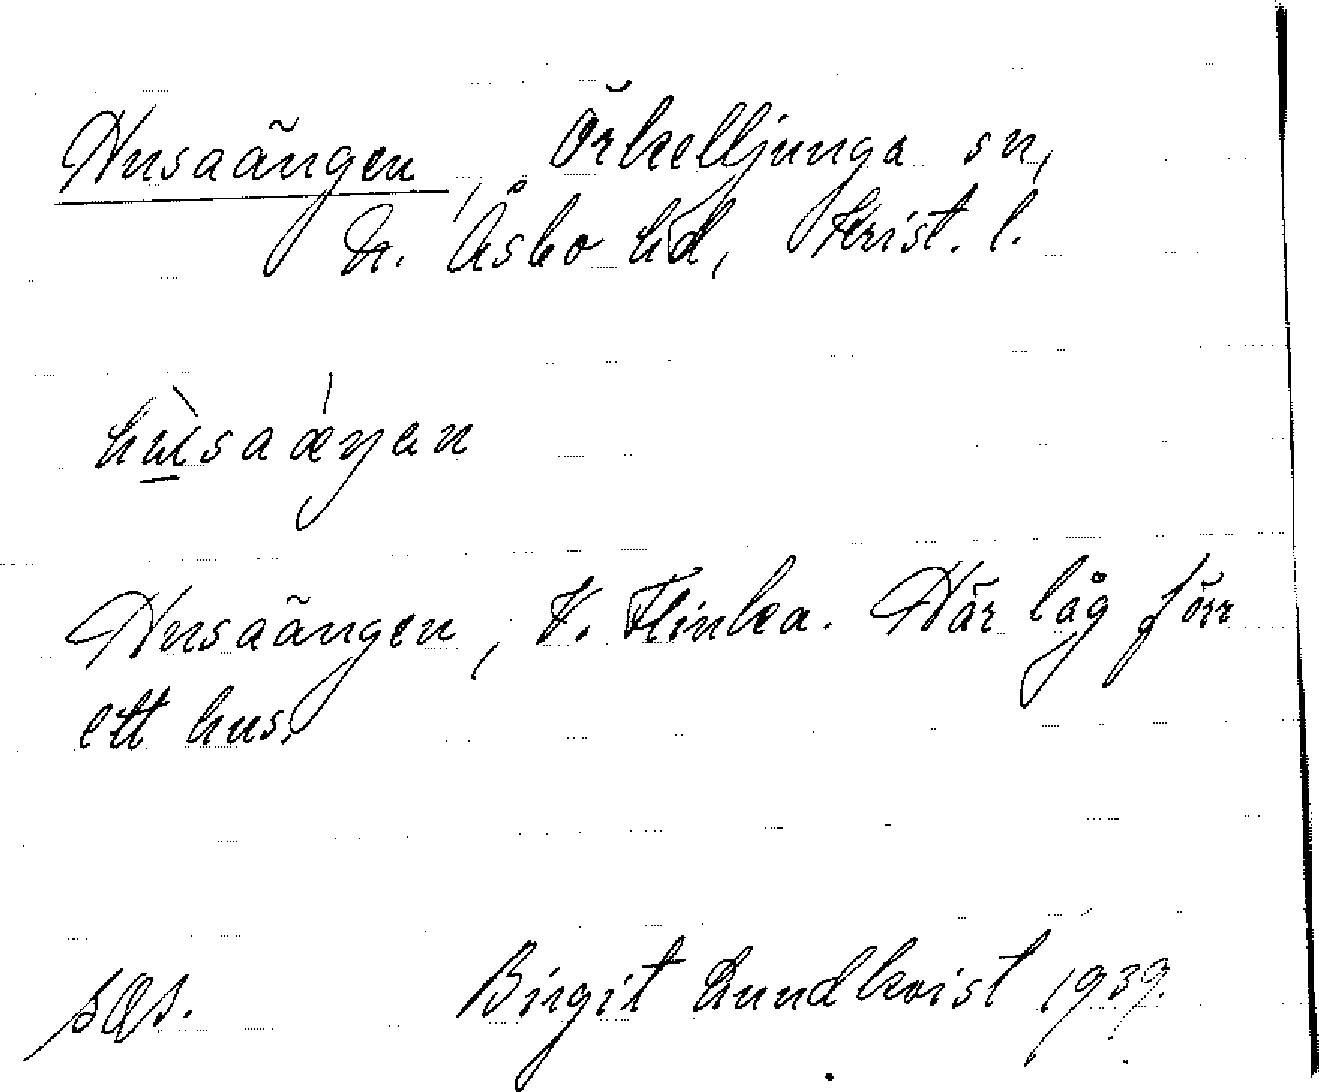 Husaängen, Örkelljunga sn,
N. Åsbo hd, Krist. l.
Husaängen, V. Flinka. Här låg förr
ett hus.
Birgit Lundkvist 1939.